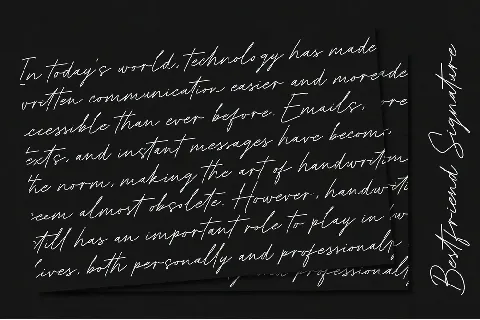 In today's world, technology has made
written communication easier and more
ccessible than ever before. Emails,
texts, and instant messages have becom
the norm, making the art of handwritin
eem almost obsolete. However, handw
still has an important role to play in
lives, both personally and professionall
ade
ore
professionall
Bestfriend Signature